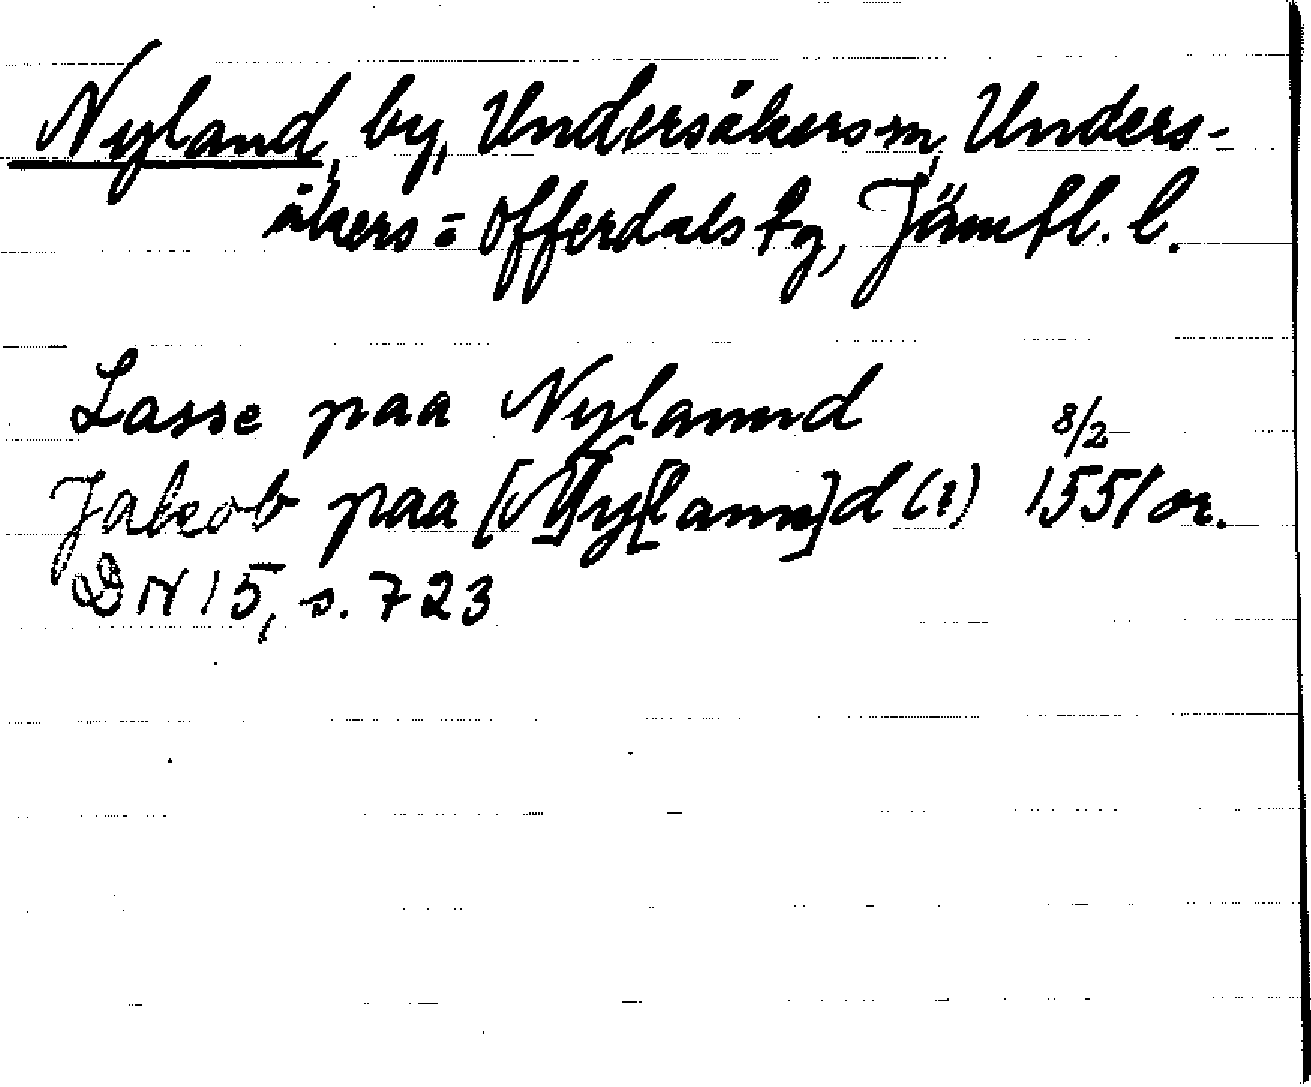 Nyland, by, Undersåkers sn, Unders-
åkers- Offerdals tg, Jämtl. l.
Lasse paa Nylannd 8/2
Jakob paa [N]y[lann]d (?) 1551 or.
DN 15, s. 723